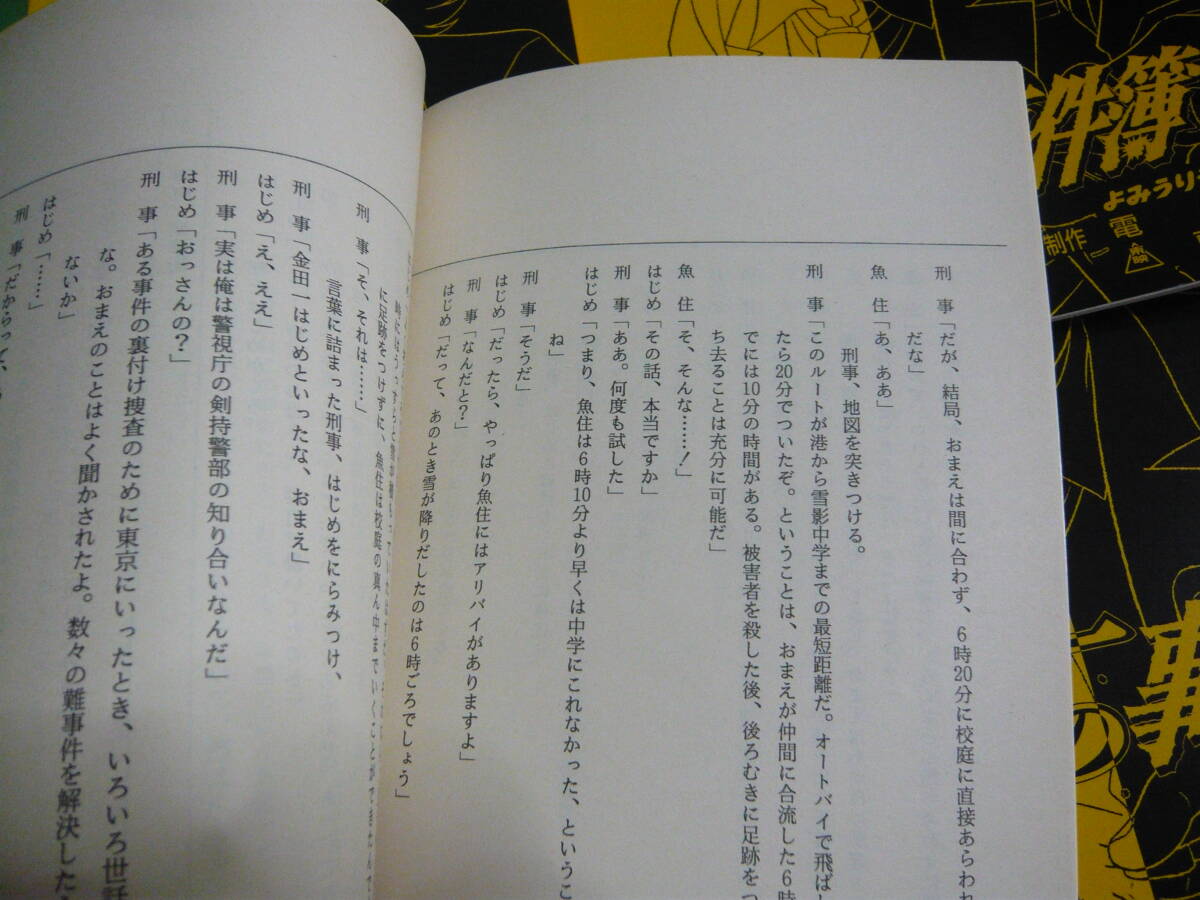 刑 事「だが、結局、おまえは間に合わず、6時20分に校庭に直接あらわれ
だな」
魚 住「あ、ああ」
刑事、地図を突きつける。
刑 事「このルートが港から雪影中学までの最短距離だ。オートバイで飛ばし
たら20分でついたぞ。ということは、おまえが仲間に合流した6時
でには10分の時間がある。被害者を殺した後、後ろむきに足跡をつ
ち去ることは充分に可能だ」
魚 住「そ、そんな……！」
はじめ「その話、本当ですか」
刑 事「ああ。何度も試した」
はじめ「つまり、魚住は6時10分より早くは中学にこれなかった、というこ
ね」
刑 事「そうだ」
はじめ「だったら、やっぱり魚住にはアリバイがありますよ」
刑 事「なんだと？」
はじめ「だって、あのとき雪が降りだしたのは6時ごろでしょう」
に足跡をつけずに、魚住は校庭の真ん中までいくことができたんで
刑 事「そ、それは……」
言葉に詰まった刑事、はじめをにらみつけ、
刑 事「金田一はじめといったな、おまえ」
はじめ「え、ええ」
刑 事「実は俺は警視庁の剣持警部の知り合いなんだ」
はじめ「おっさんの？」
刑 事「ある事件の裏付け捜査のために東京にいったとき、いろいろ世話
な。おまえのことはよく聞かされたよ。数々の難事件を解決した
ないか」
はじめ「……」
刑 事「だからって、
件簿
よみうり
制作
電
東映
の事